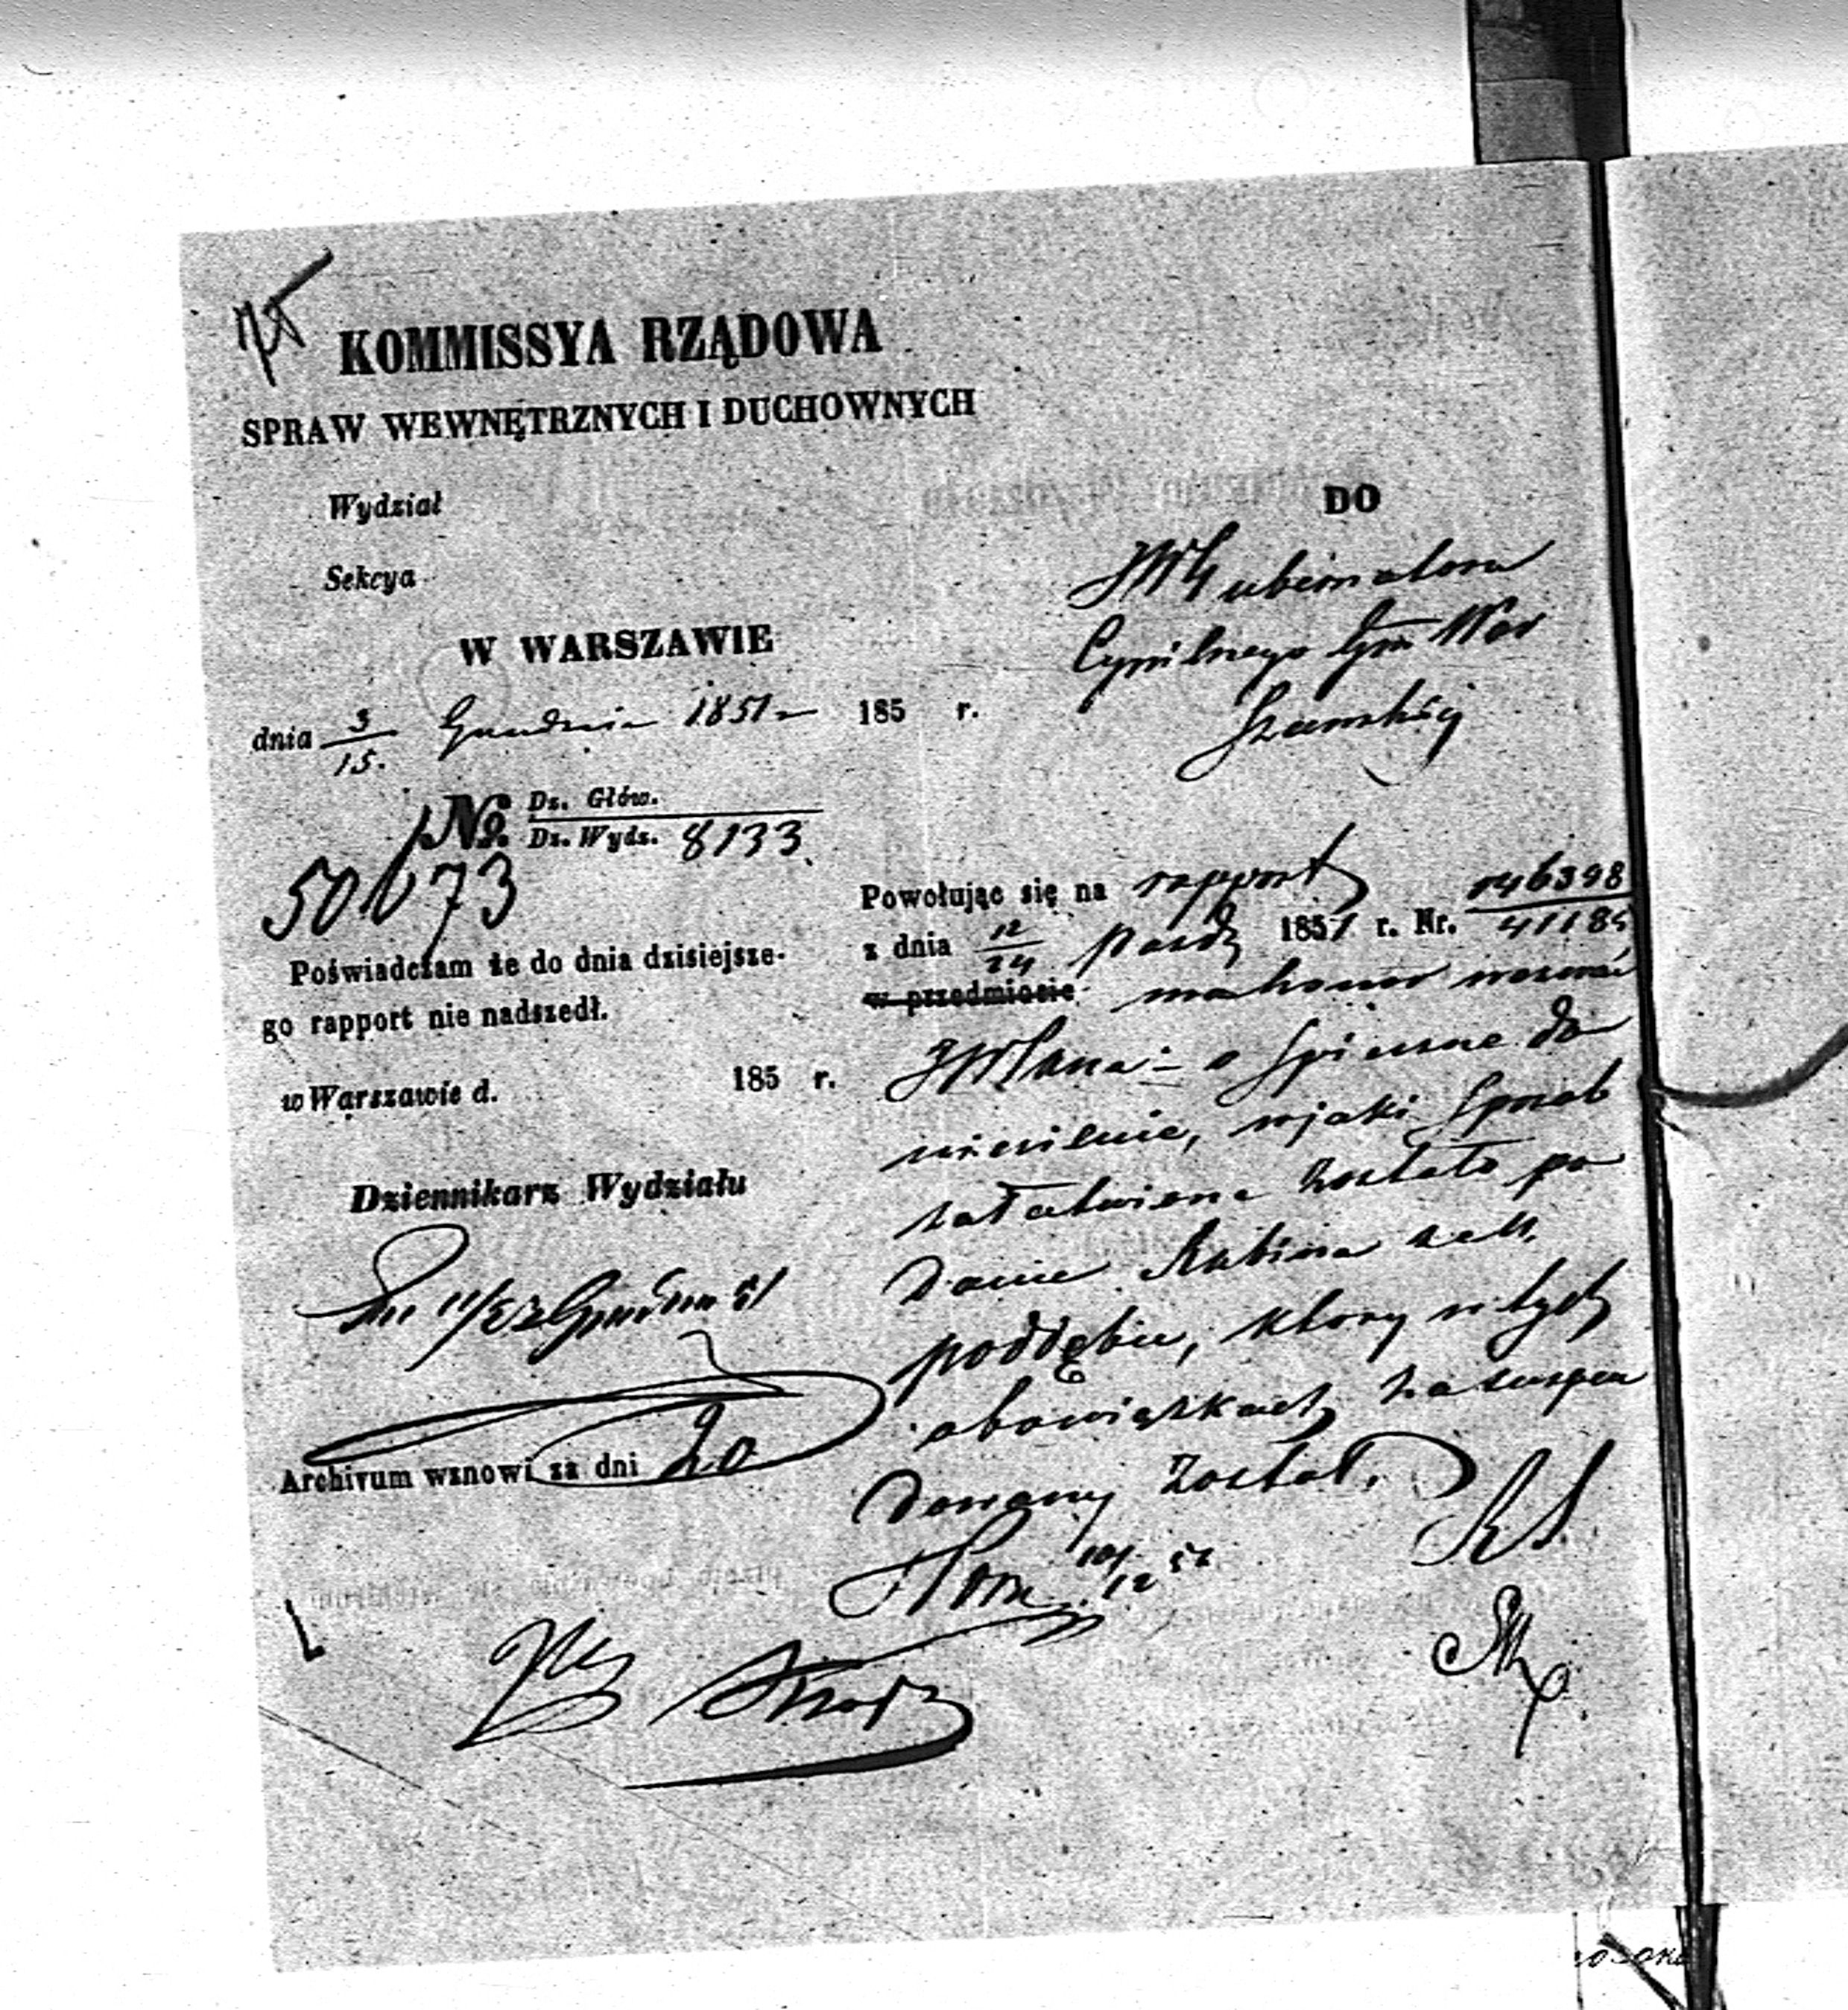 KOMMISSYA RZĄDOWA
SPRAW WEWNĘTRZNYCH I DUCHOWNYCH
Wydział
Sekcya
W WARSZAWIE
dnia 3/15. Grudnia 1851 185 r.
No. Dz. Głów.
Dz. Wydz. 8133
50673
Poświadczam że do dnia dzisiejsze-
go rapport nie nadszedł.
w Warszawie d. 185 r.
Dziennikarz Wydziału
Archivum wznowi za dni 20
DO
JW Gubernatora
Cywilnego Gub. War
szawskiej
Powołując się na rapport
z dnia 12/24 Paźdz 1851 r. Nr. 146398/41185
w przedmiocie mam honor wezwać
JW Pana o spieszne do
niesienie, w jaki sposób
załatwione zostało po
danie Rabina
Poddębic, który w tych
obowiązkach zasuspen
dowany został.